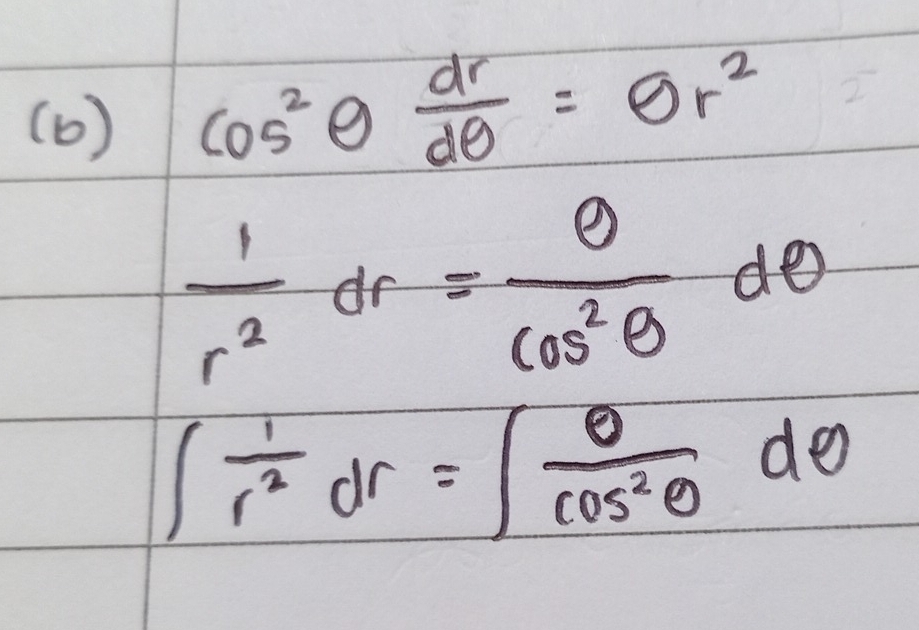 (b) cos² θ dr/dθ = θr²
1/r² dr = θ/cos² θ dθ
∫ 1/r² dr = ∫ θ/cos² θ dθ